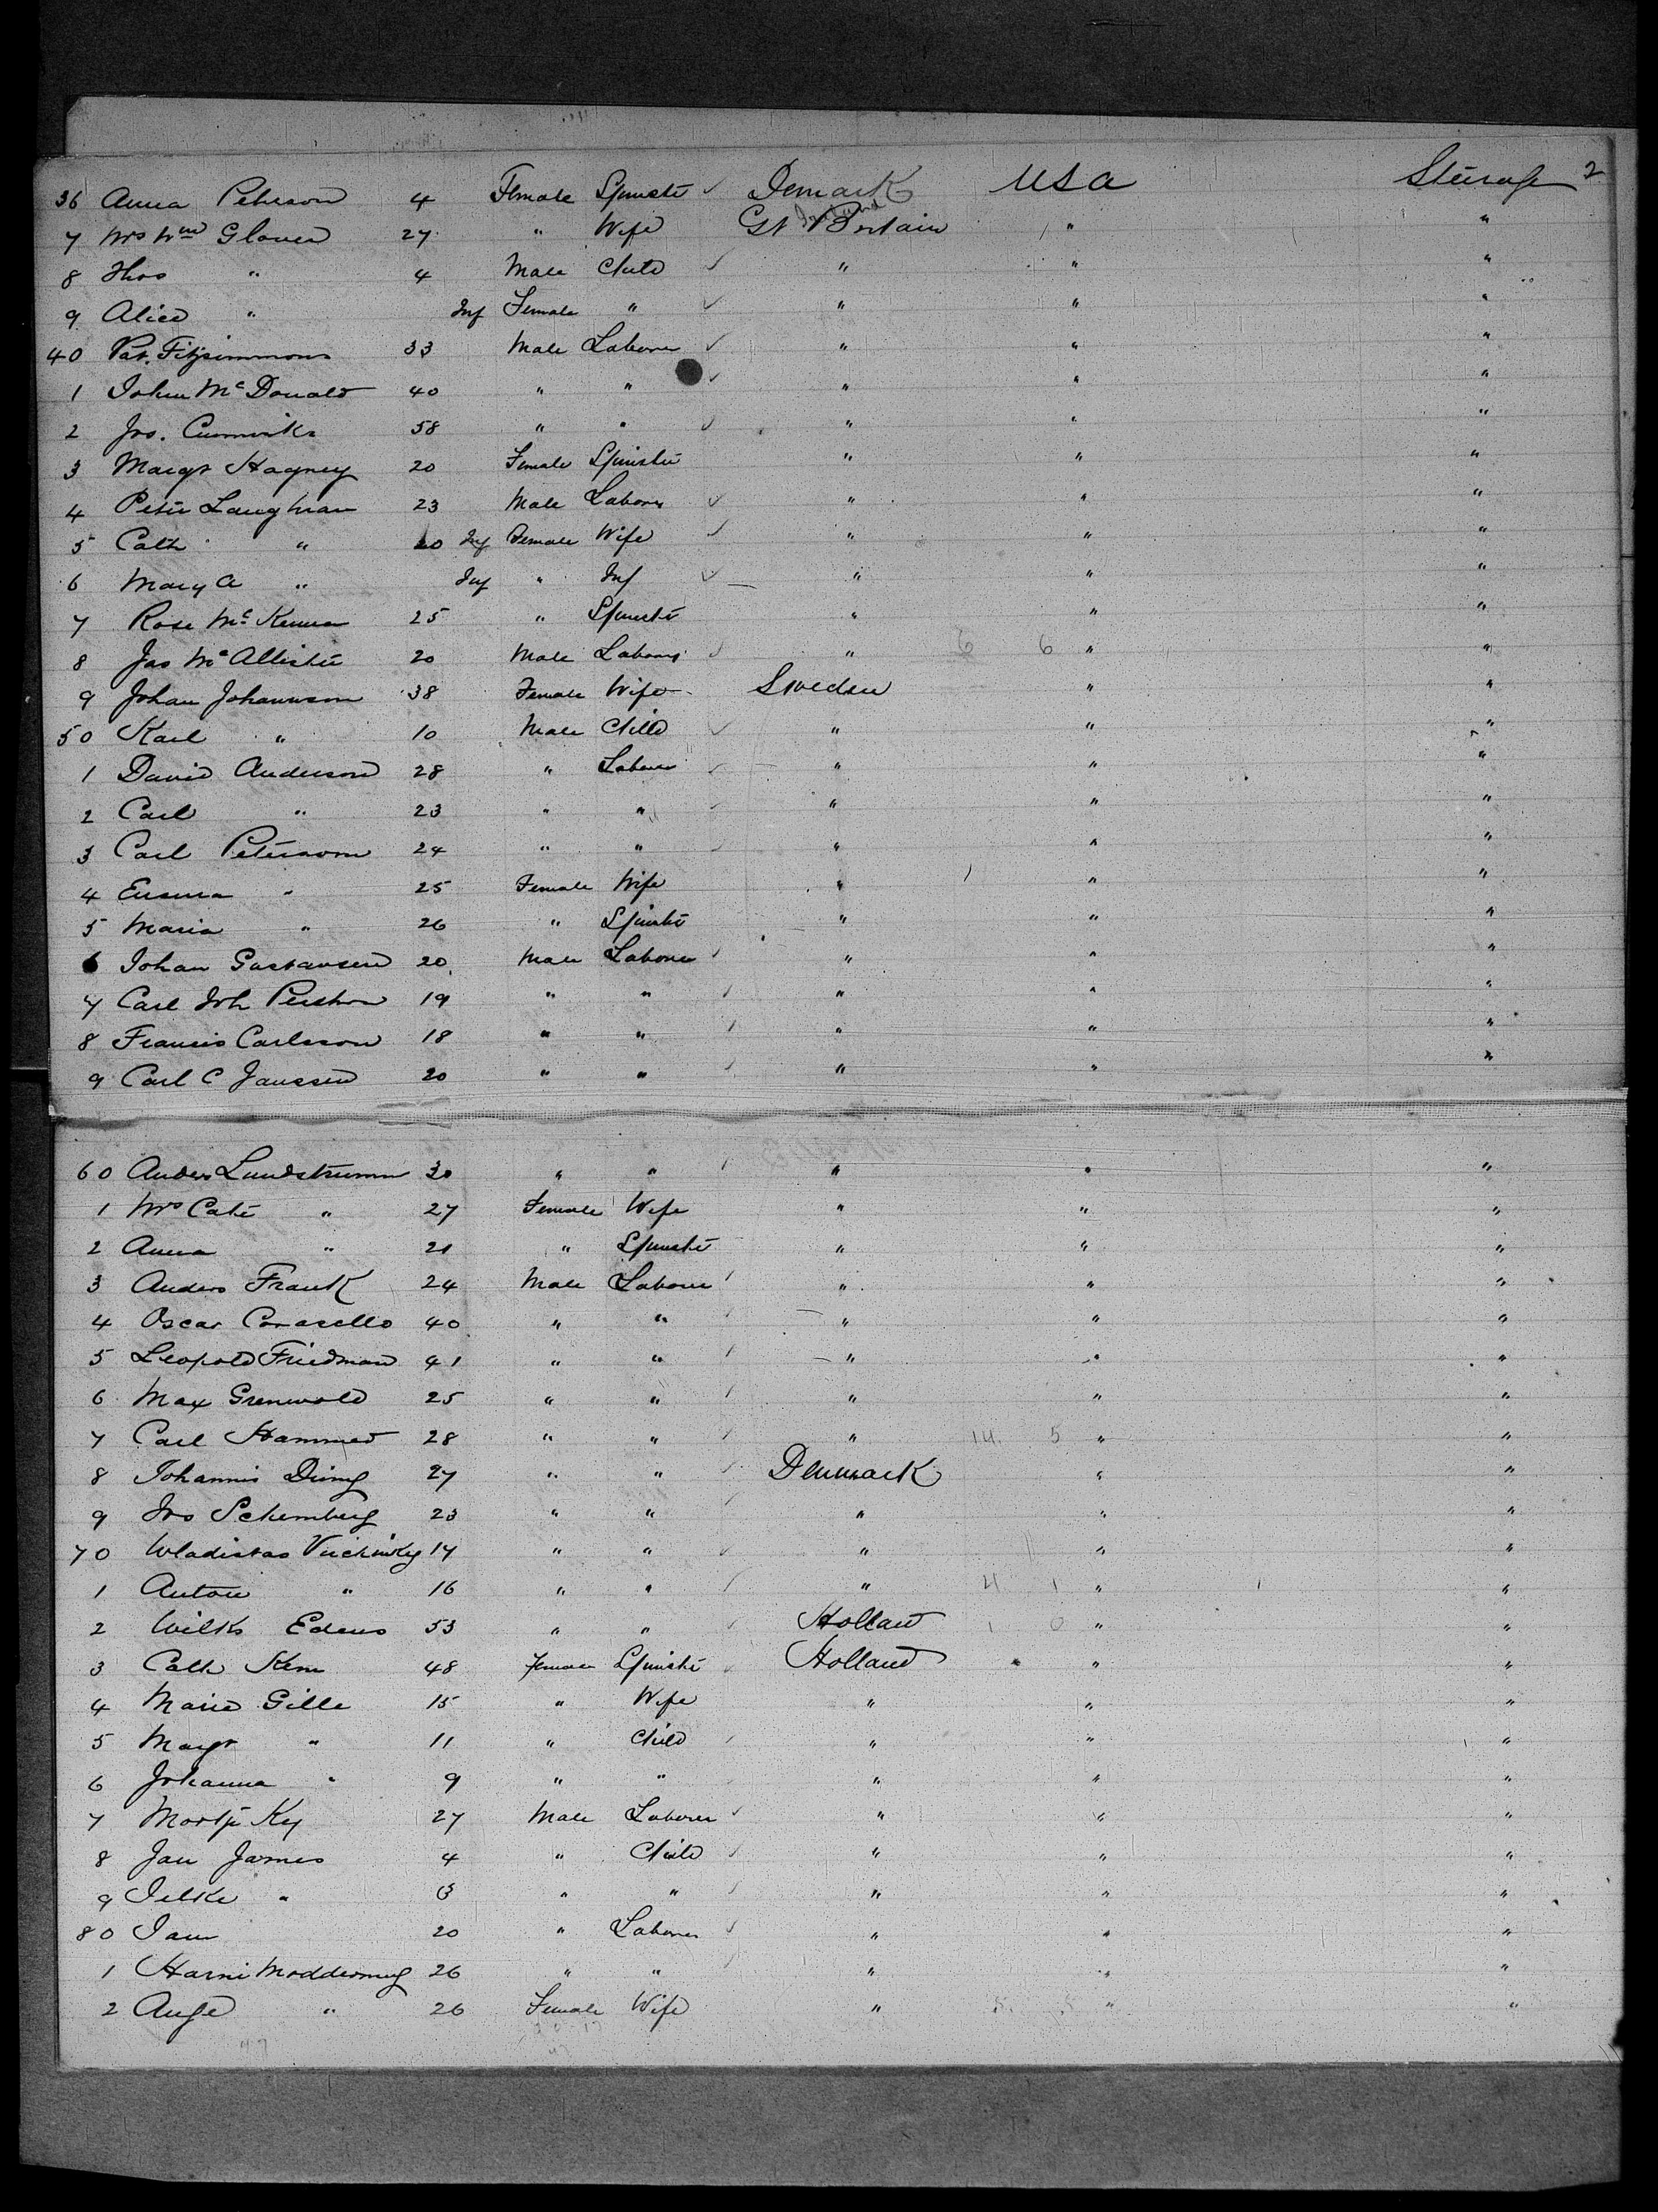 36 Anna Peterson 4 Female Spinster ✓ Demark USA Steerage 2
7 Mrs Wm Glover 27 " Wife Gt Britain Ireland " "
8 Thos " 4 Male Child ✓ " " "
9 Alice " Inf Female " ✓ " " "
40 Pat. Fitzsimmons 33 Male Laborer ✓ " " "
1 John McDonald 40 " " ✓ " " "
2 Jos. 58 " " ✓ " " "
3 Margt Hagney 20 Female Spinster " " "
4 Peter Laughran 23 Male Laborer ✓ " " "
5 Cath " 20 Female Wife ✓ " " "
6 Mary A " Inf " Inf ✓ " " "
7 Rose McKenna 25 " Spinster " " "
8 Jas McAllister 20 Male Laborer ✓ " 6 6 " "
9 Johan Johannson 38 Female Wife Sweden " "
50 Karl " 10 Male Child ✓ " " "
1 David Anderson 28 " Laborer ✓ " " "
2 Carl " 23 " " ✓ " " "
3 Carl Peterson 24 " " ✓ " " "
4 Emma " 25 Female Wife " " "
5 Maria " 26 " Spinster " " "
6 Johan Gustavsen 20 Male Laborer ✓ " " "
7 Carl Joh 19 " " ✓ " " "
8 Francis Carlsson 18 " " ✓ " " "
9 Carl C Janssen 20 " " ✓ " " "
60 Anders Lundstrumm 30 " " ✓ " " "
1 Mrs Cate " 27 Female Wife " " "
2 Anna " 21 " Spinster " " "
3 Anders Frank 24 Male Laborer ✓ " " "
4 Oscar 40 " " ✓ " " "
5 Leopold Friedman 41 " " ✓ " " "
6 Max Grenwald 25 " " ✓ " " "
7 Carl Hammed 28 " " ✓ " 14 5 " "
8 Johannis 27 " " ✓ Denmark " "
9 Jos Schemberg 23 " " ✓ " " "
70 Wladislas 17 " " ✓ " " "
1 Anton " 16 " " ✓ " 4 1 " "
2 Wilks Edens 53 " " ✓ Holland 1 0 " "
3 Cath Kem 48 Female Spinster ✓ Holland " "
4 Marie Gille 15 " Wife " " "
5 Margt " 11 " Child ✓ " " "
6 Johanna " 9 " " ✓ " " "
7 Ky 27 Male Laborer ✓ " " "
8 Jan James 4 " Child ✓ " " "
9 Jelke " 3 " " ✓ " " "
80 Jan 20 " Laborer ✓ " " "
1 Harni 26 " " ✓ " " "
2 Ange " 26 Female Wife " " "
47